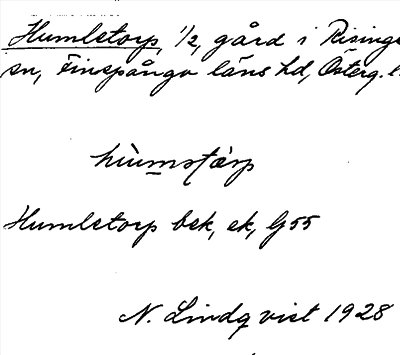 Humletorp, 1/2, gård i Risinge
sn, Finspånga läns hd, Österg. l.
hùmstàrp
Humletorp bsk, ek, G55
N. Lindqvist 1928